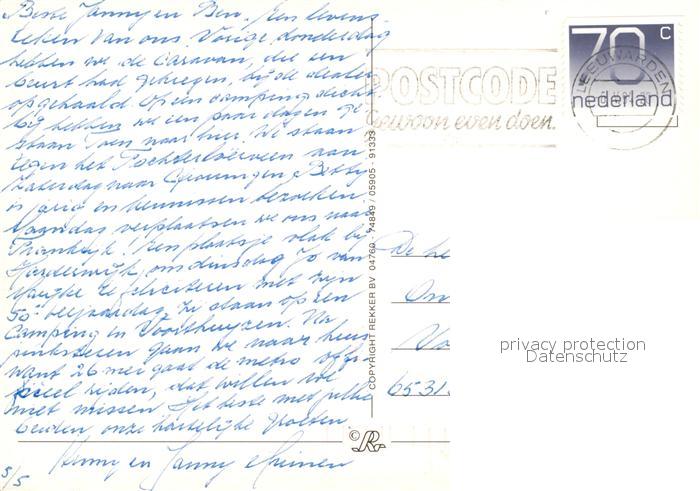 Beste Janny en Ben. Een levens
teken van ons. Vorige donderdag
hebben we de caravan, die een
beurt had gekregen, bij de dealer
opgehaald. Op een camping dicht
bij hebben we een paar dagen ge
staan toen naar hier. We staan
tegen het aan
Zaterdag naar Groningen, Betty
is jarig en kennissen bezoeken.
Maandag verplaatsen we ons naar
! Een plaatsje vlak bij
Harderwijk, om dinsdag Jo van
te feliciteren met zijn
50e verjaardag, zij staan op een
camping in Voorthuizen. Na
pinksteren gaan we naar huis
want 26 mei gaat de metro offi
ciëel rijden, dat willen we
niet missen. Het beste met jullie
beiden onze hartelijke groeten.
en Janny
5/5
COPYRIGHT REKKER BV 04760 - 74849 / 05905 - 91333
© R
POSTCODE
Gewoon even doen.
70 c
nederland
LEEUWARDEN
De he
On
Va
6531
privacy protection
Datenschutz